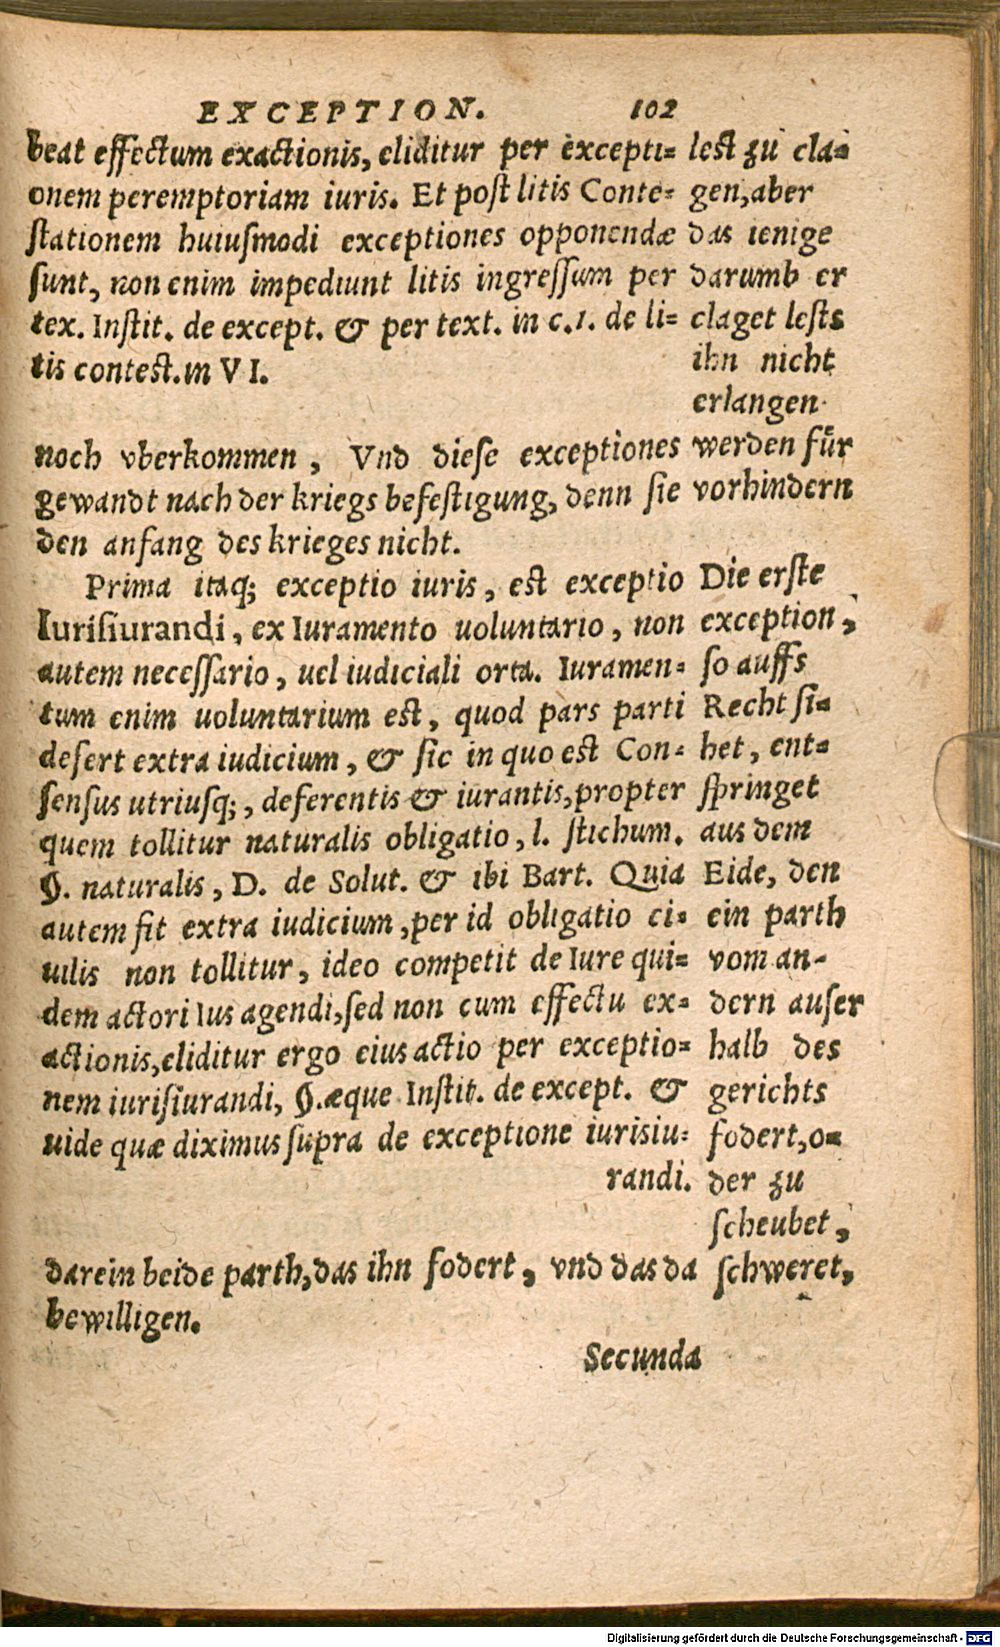 EXCEPTION. 102
beat effectum exactionis, eliditur per excepti=
onem peremptoriam iuris. Et post litis Conte=
stationem huiusmodi exceptiones opponendæ
sunt, non enim impediunt litis ingressum per
tex. Instit. de except. & per text. in c.1. de li=
tis contest. in VI.
lest zu cla=
gen, aber
das ienige
darumb er
claget lests
ihn nicht
erlangen
noch vberkommen, Vnd diese exceptiones werden fůr
gewandt nach der kriegs befestigung, denn sie vorhindern
den anfang des krieges nicht.
Prima itaq; exceptio iuris, est exceptio
Iurisiurandi, ex Iuramento uoluntario, non
autem necessario, uel iudiciali orta. Iuramen=
tum enim uoluntarium est, quod pars parti
desert extra iudicium, & sic in quo est Con=
sensus utriusq;, deferentis & iurantis, propter
quem tollitur naturalis obligatio, l. stichum.
§. naturalis, D. de Solut. & ibi Bart. Quia
autem fit extra iudicium, per id obligatio ci=
uilis non tollitur, ideo competit de Iure qui=
dem actori Ius agendi, sed non cum effectu ex=
actionis, eliditur ergo eius actio per exceptio=
nem iurisiurandi, §. æque Instit. de except. &
uide quæ diximus supra de exceptione iurisiu=
randi.
Die erste
exception,
so auffs
Recht si=
het, ent=
springet
aus dem
Eide, den
ein parth
vom an-
dern auser
halb des
gerichts
fodert, o=
der zu
scheubet,
darein beide parth, das ihn fodert, vnd das da schweret,
bewilligen.
Secunda
Digitalisierung gefördert durch die Deutsche Forschungsgemeinschaft - DFG